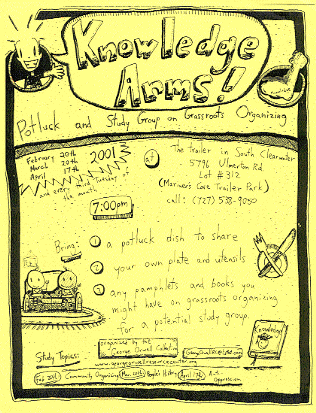 Knowledge
Arms!
Potluck and Study Group on Grassroots Organizing
February 20th
March 20th
April 17th
2001
and every third Tuesday of
the month
at
The Trailer in South Clearwater
5796 Ulmerton Rd
Lot #312
(Mariner's Cove Trailer Park)
call: (727) 538-9050
7:00pm
Bring:
1 a potluck dish to share
2 your own plate and utensils
3 any pamphlets and books you
might have on grassroots organizing
for a potential study group.
Knowledge
organized by the
Study Topics:
Community Organizing
People's History
April 17th
Anti-
Oppression